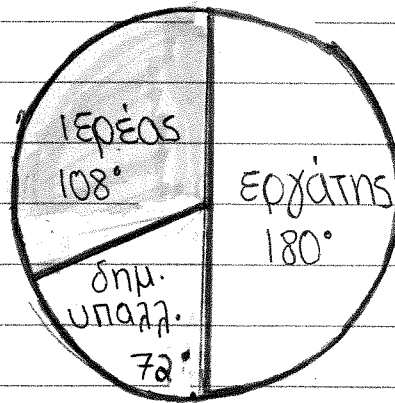 ιερέας
108°
εργάτης
180°
δημ.
υπαλλ.
72°